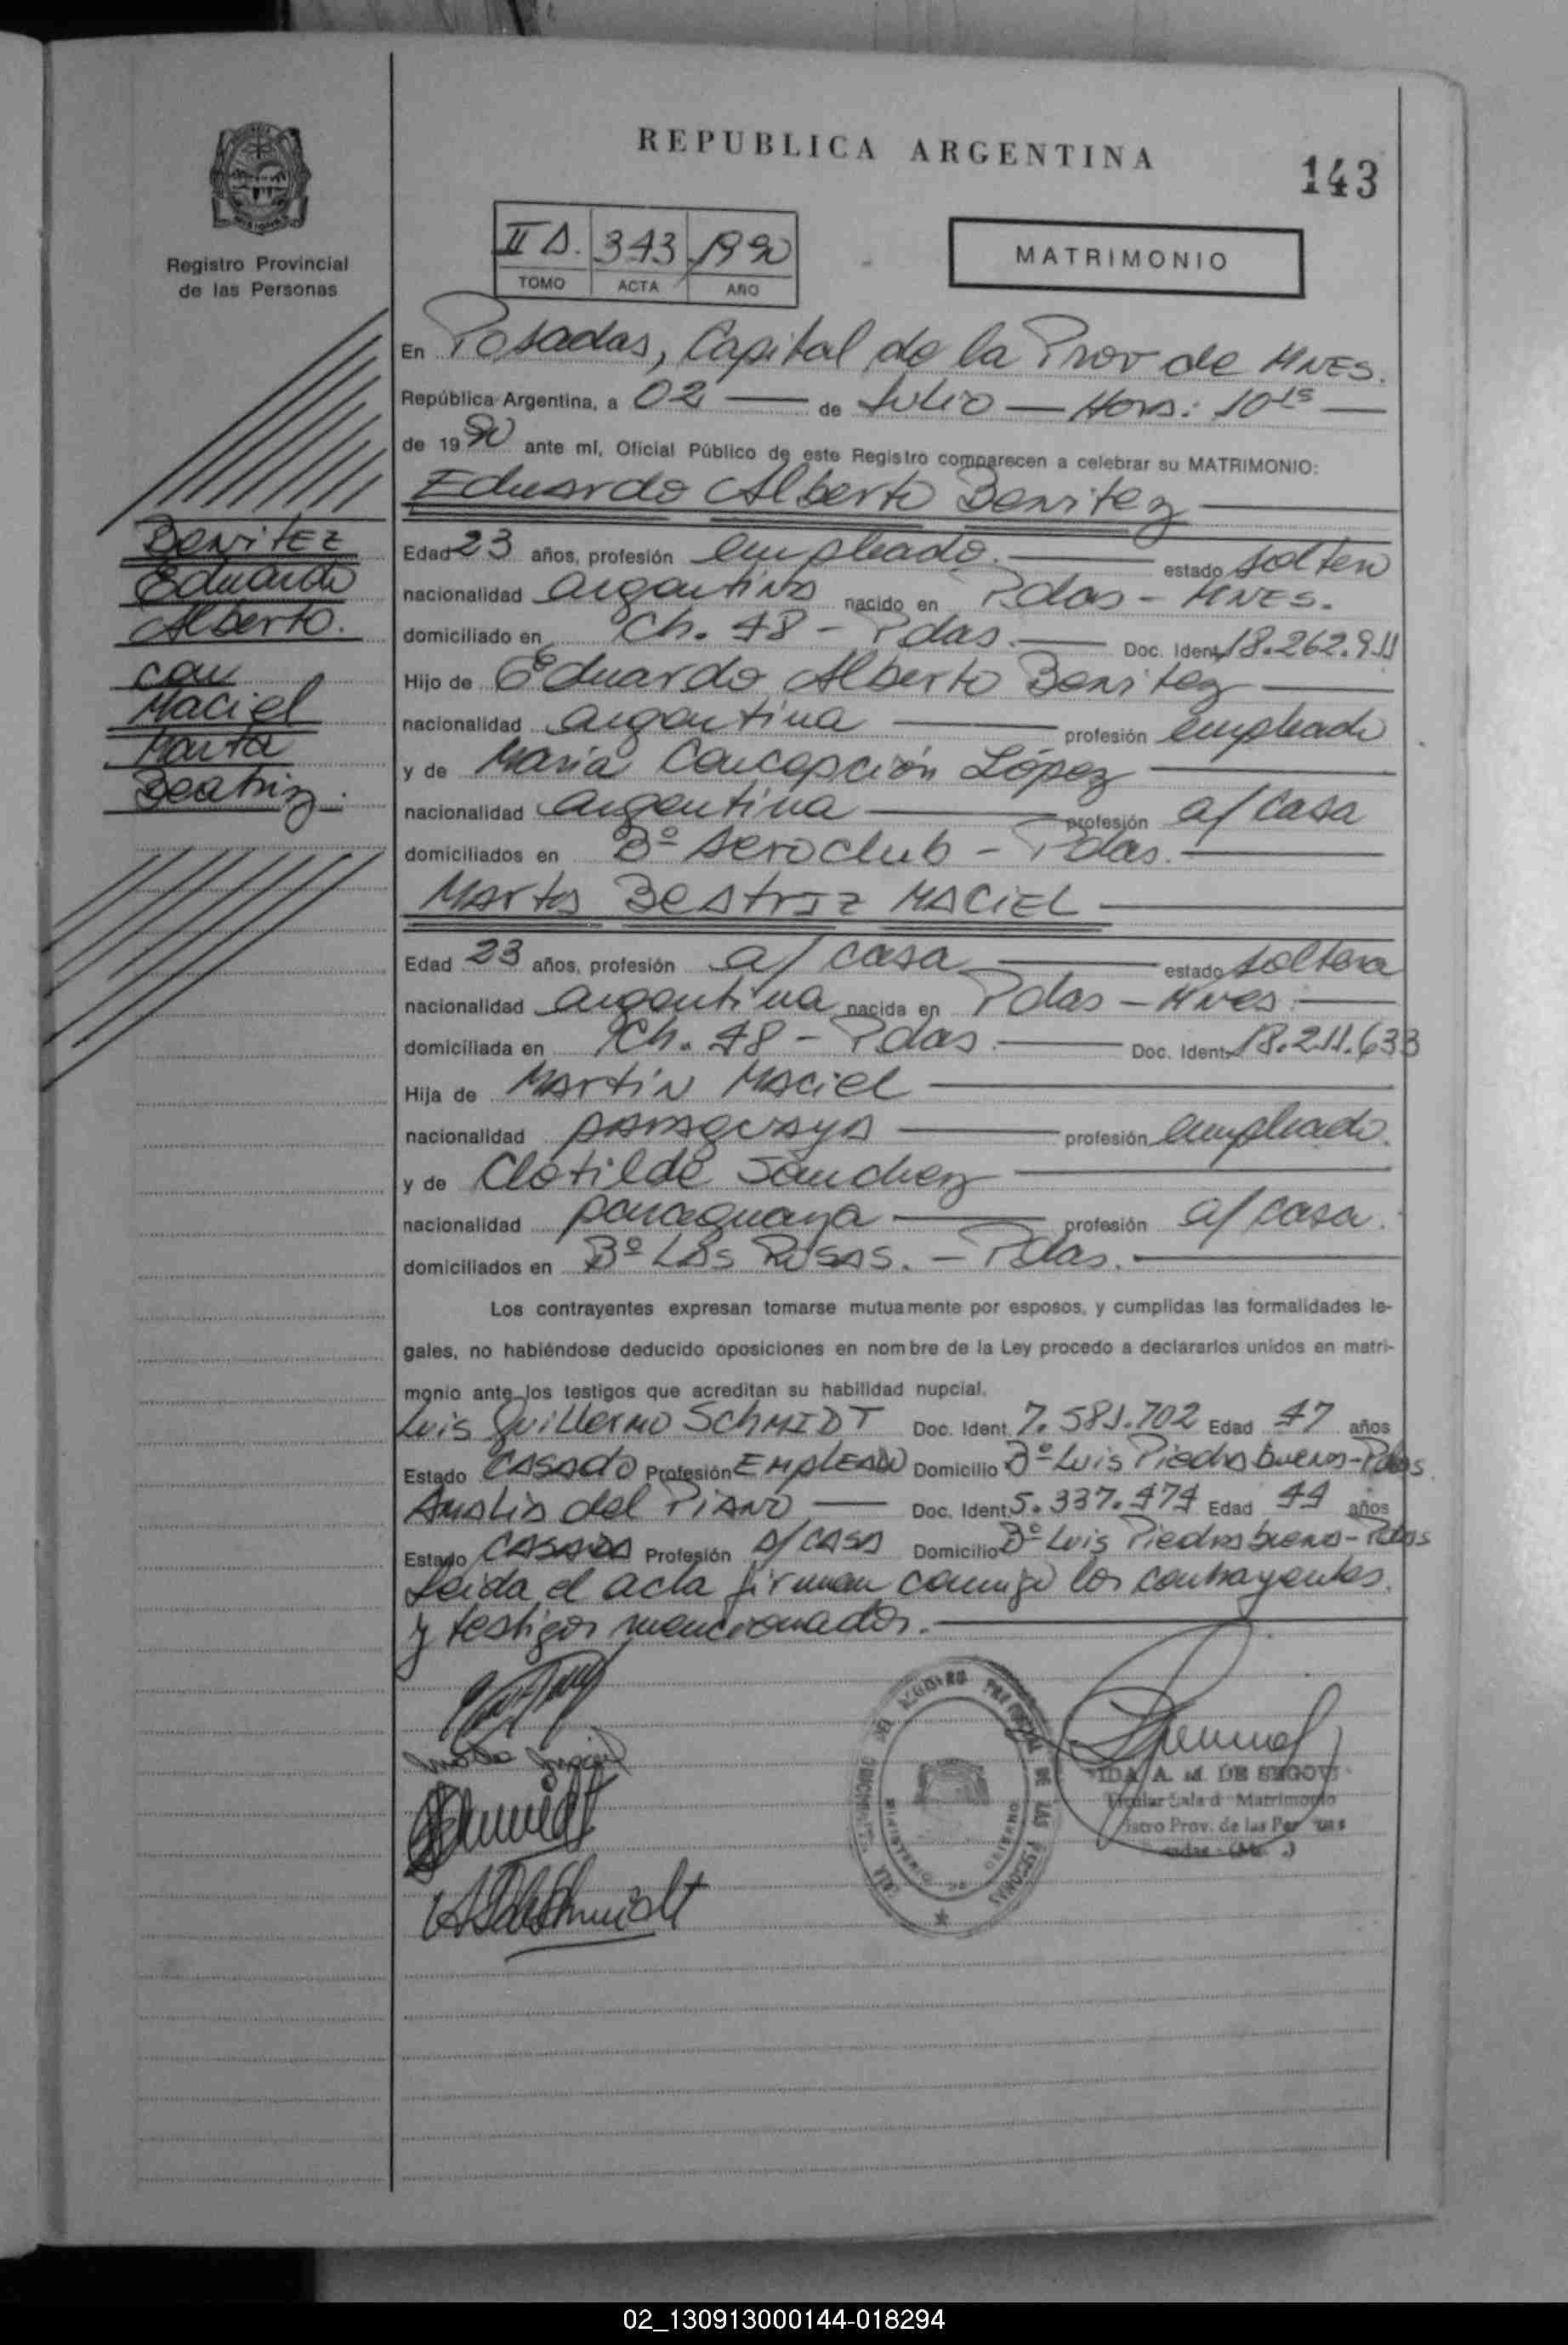 REPUBLICA ARGENTINA
143
Registro Provincial
de las Personas
II D. 343 1990
TOMO ACTA AÑO
MATRIMONIO
En Posadas, Capital de la Prov de MNES.
República Argentina, a 02 — de Julio — Hora: 10 15 —
de 1990 ante mí, Oficial Público de este Registro comparecen a celebrar su MATRIMONIO:
Eduardo Alberto Benitez
Benitez
Eduardo
Alberto.
con
Maciel
Marta
Beatriz.
Edad 23 años, profesión empleado. estado soltero
nacionalidad argentina nacido en Pdas - MNES.
domiciliado en Ch. 48 - Pdas. Doc. Ident. 18.262.911
Hijo de Eduardo Alberto Benitez
nacionalidad argentina profesión empleado
y de María Concepción López
nacionalidad argentina profesión a/ casa
domiciliados en Bº Aeroclub - Pdas.
Marta Beatriz MACIEL
Edad 23 años, profesión a/ casa estado soltera
nacionalidad argentina nacida en Pdas - Mnes.
domiciliada en Ch. 48 - Pdas. Doc. Ident. 18.211.633
Hija de Martin Maciel
nacionalidad paraguaya profesión empleado.
y de Clotilde Sanchez
nacionalidad paraguaya profesión a/ casa.
domiciliados en Bº Las Rosas. - Pdas.
Los contrayentes expresan tomarse mutuamente por esposos, y cumplidas las formalidades le-
gales, no habiéndose deducido oposiciones en nombre de la Ley procedo a declararlos unidos en matri-
monio ante los testigos que acreditan su habilidad nupcial.
Luis Guillermo SCHMIDT Doc. Ident. 7.581.702 Edad 47 años
Estado casado Profesión EMPLEADO Domicilio Bº Luis Piedrabuena - Pdas.
Amalia del Piano — Doc. Ident. 5.337.474 Edad 44 años
Estado casada Profesión a/ casa Domicilio Bº Luis Piedrabuena - Pdas
Leida el acta firman conmigo los contrayentes
y testigos mencionados.
Schmidt
Schmidt
A. M. DE SEGOVI
Titular Sala d Matrimonio
istro Prov. de las Per nas
MINISTERIO DE GOBIERNO
02_130913000144-018294